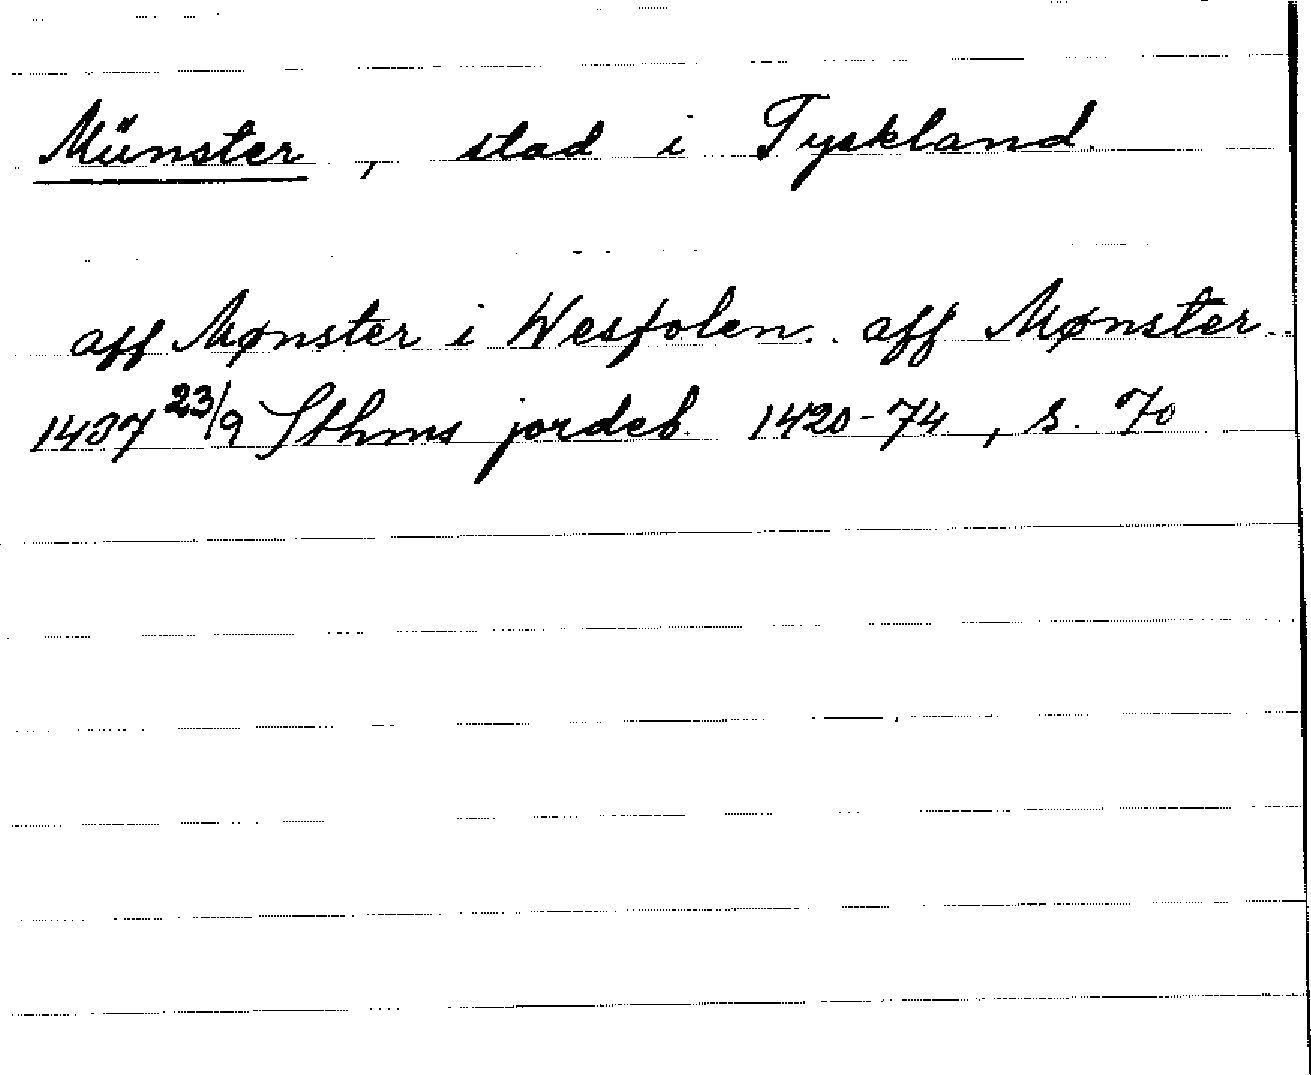 Münster, stad i Tyskland.
aff Mønster i Wesfolen. aff Mønster
1437 23/9 Sthms jordeb. 1420-74, s. 70